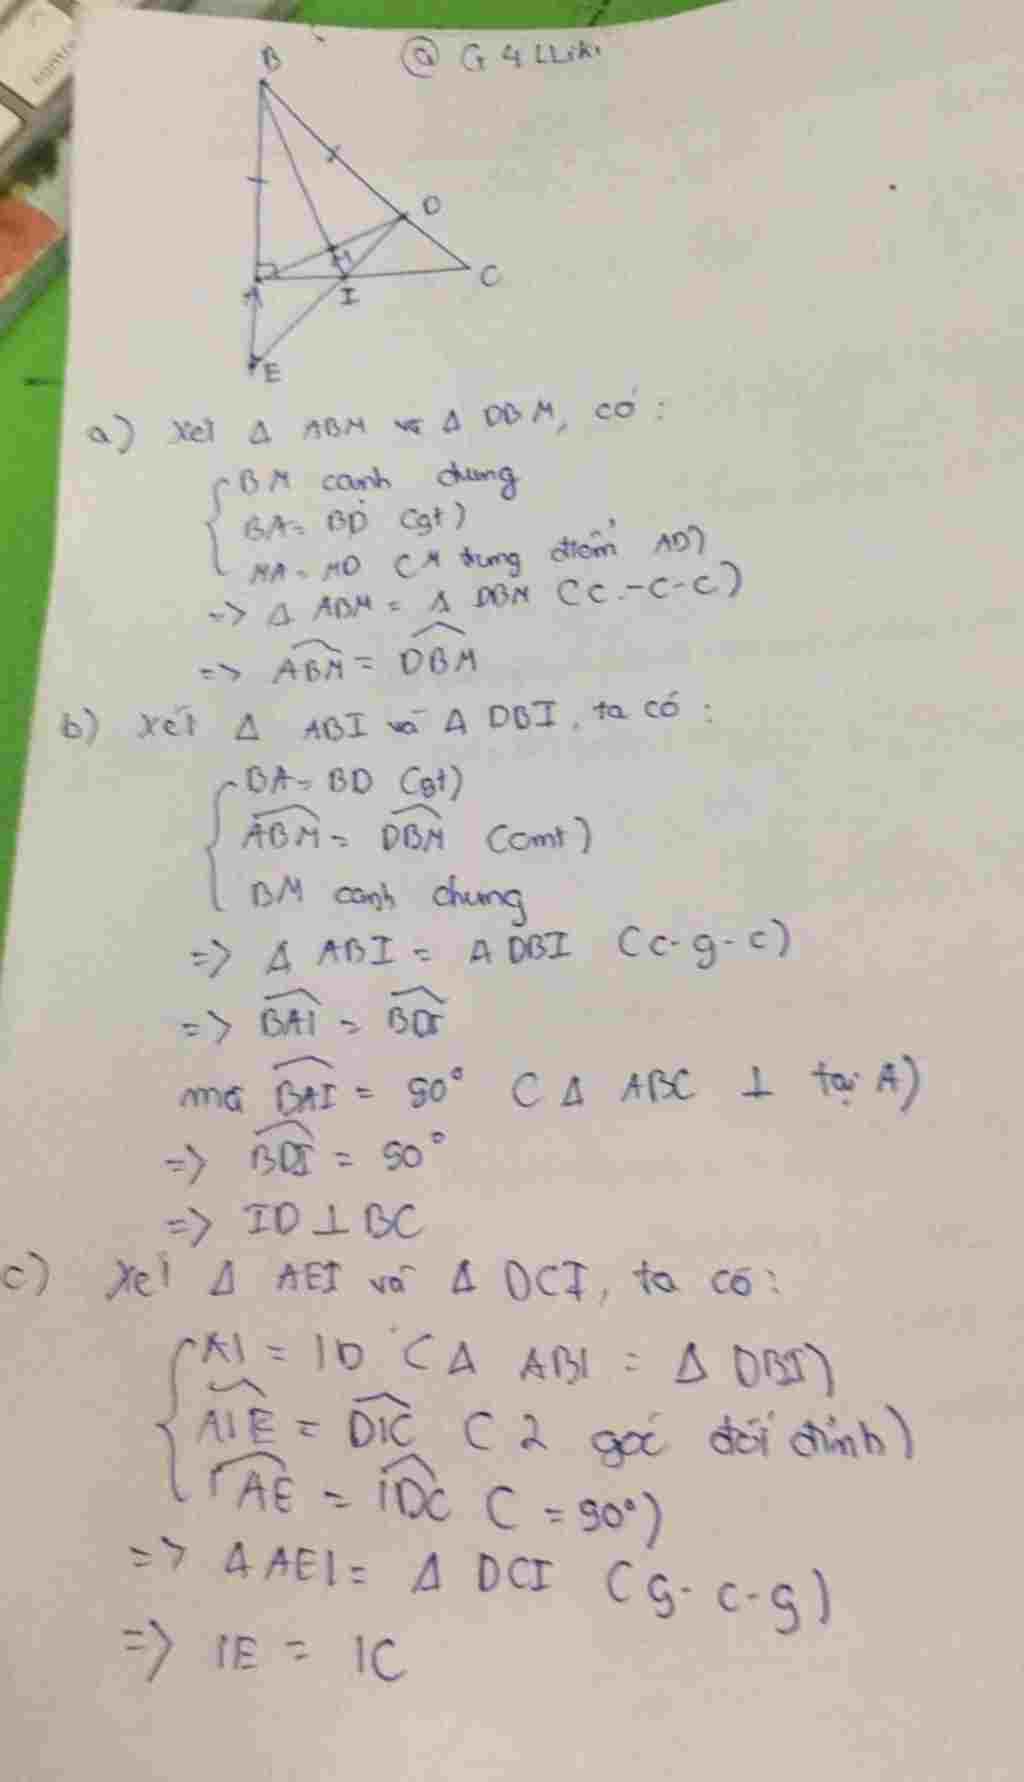 B
@ G4LLiki
D
M
C
A
I
E
a) Xét Δ ABM và Δ DBM, có :
BM cạnh chung
BA = BD (gt)
MA = MD (M trung điểm AD)
=> Δ ABM = Δ DBM (c-c-c)
=> ABM = DBM
b) Xét Δ ABI và Δ DBI, ta có :
BA = BD (gt)
ABM = DBM (cmt)
BM cạnh chung
=> Δ ABI = Δ DBI (c-g-c)
=> BAI = BDI
mà BAI = 90° (Δ ABC ⊥ tại A)
=> BDI = 90°
=> ID ⊥ BC
c) Xét Δ AEI và Δ DCI, ta có :
AI = ID (Δ ABI = Δ DBI)
AIE = DIC (2 góc đối đỉnh)
IAE = IDC (= 90°)
=> Δ AEI = Δ DCI (g-c-g)
=> IE = IC